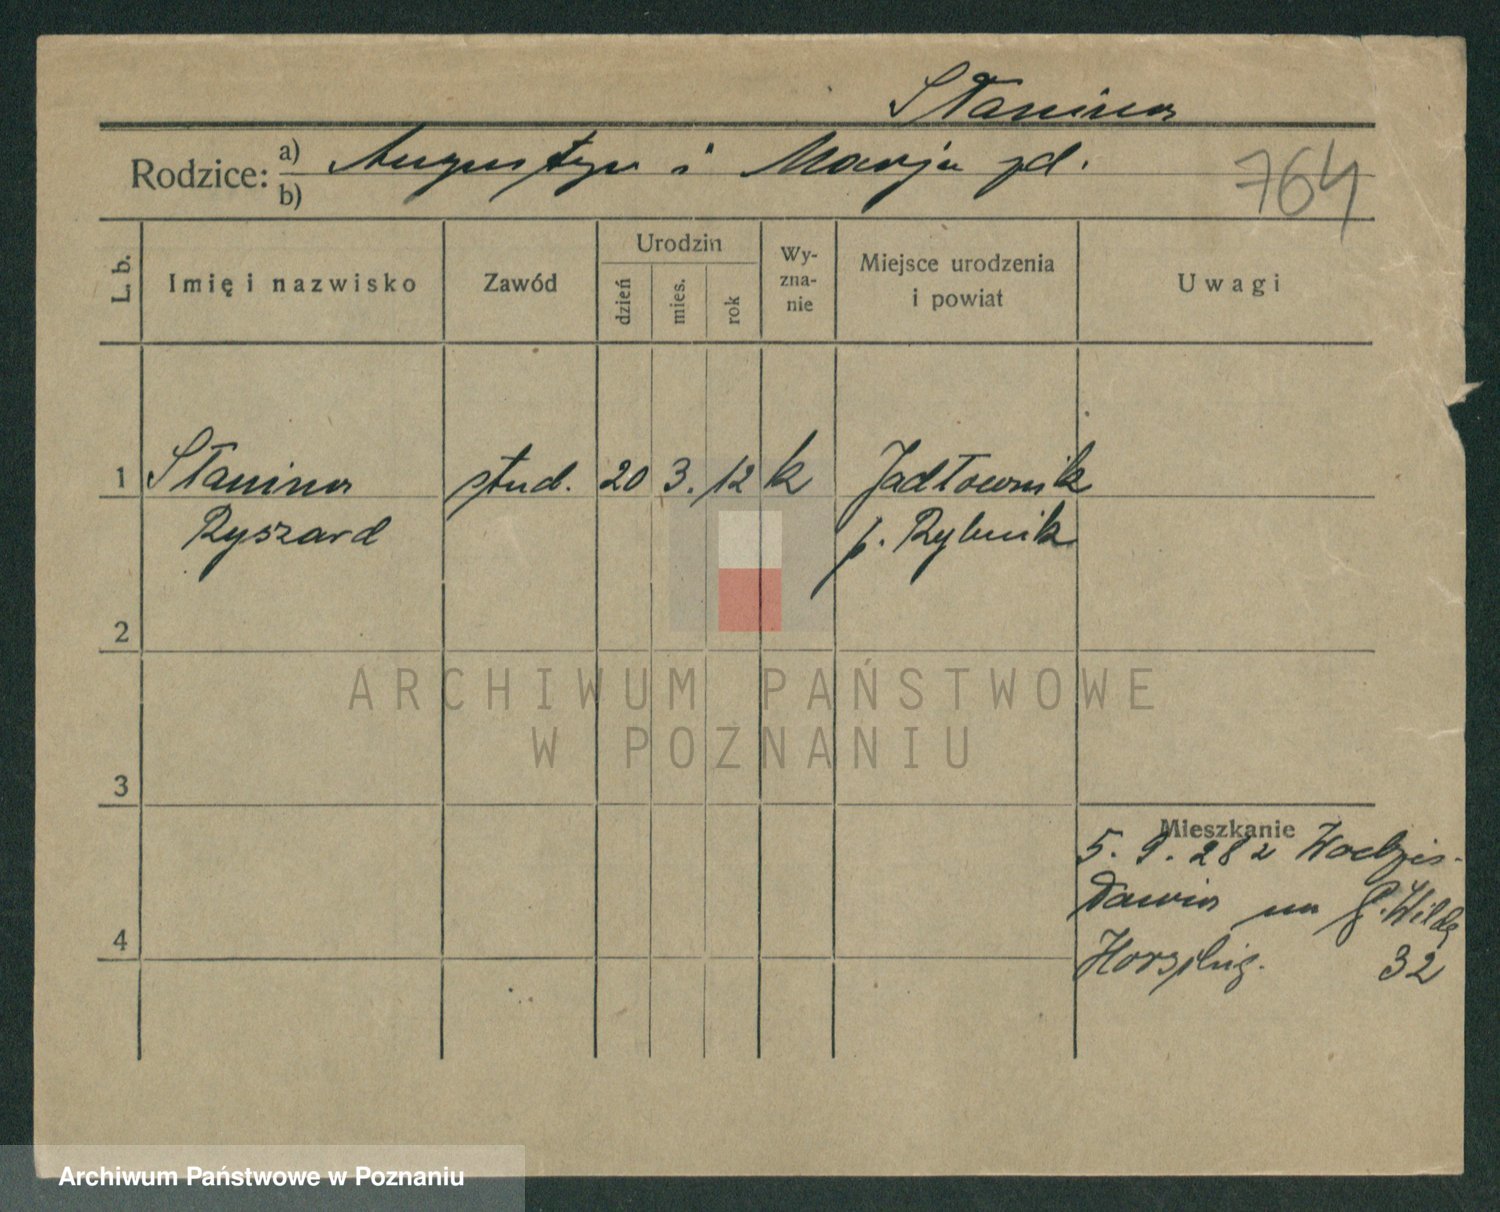 Słanina
Rodzice: a) Augustyn i Marja zd.
b)
764
L. b.
Imię i nazwisko
Zawód
Urodzin
dzień
mies.
rok
Wy-
zna-
nie
Miejsce urodzenia
i powiat
Uwagi
1 Słanina stud. 20 3. 12 k Jadłownik
Ryszard p. Rybnik
2
3
4
Mieszkanie
5. 9. 28 z Wodzis-
ławia na G. Wildę
32
ARCHIWUM PAŃSTWOWE
W POZNANIU
Archiwum Państwowe w Poznaniu